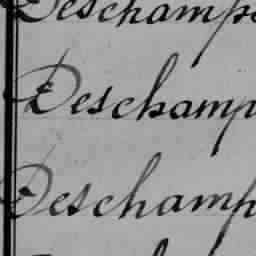 Deschamps
Deschamp
Deschamp